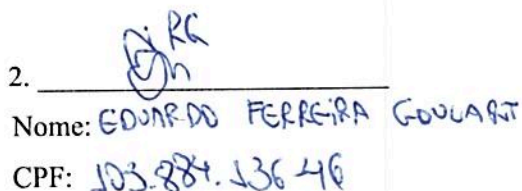 2.
Nome: EDUARDO FERREIRA GOULART
CPF: 103.884.136-46